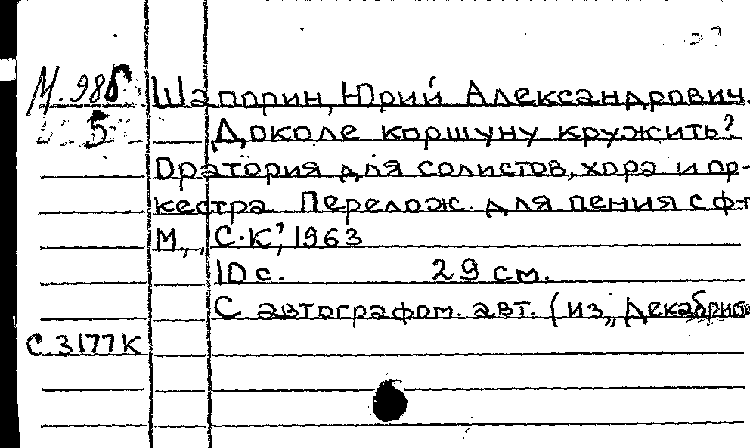 М.98б Шапорин, Юрий Александрович.
5 Доколе коршуну кружить?
Оратория для солистов, хора и ор-
кестра. Перелож. для пения с ф-п
М., „С.К", 1963
10 с. 29 см.
С автографом. авт. (из „Декабрис
С.3177К